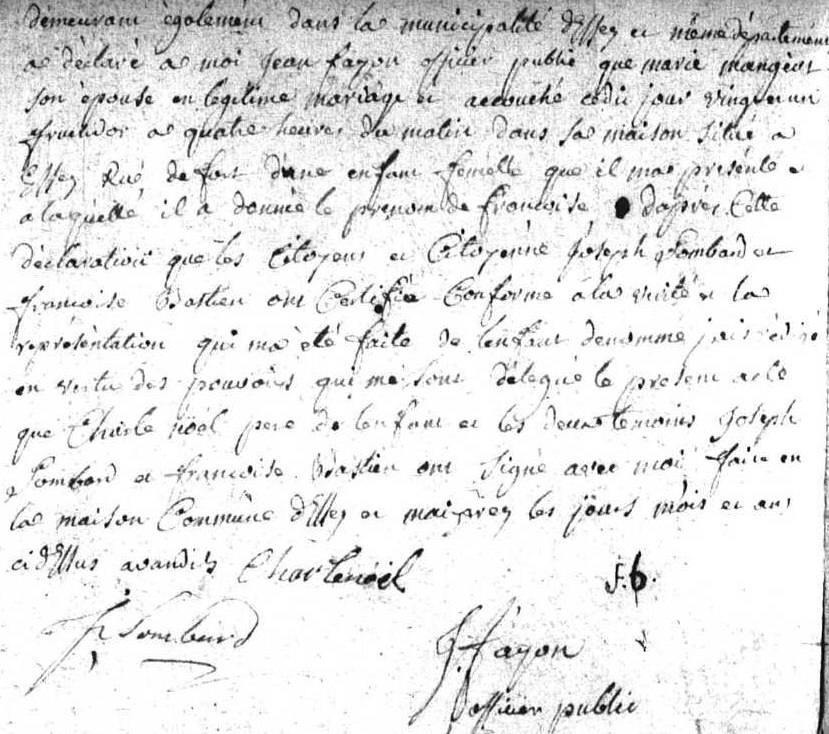 demeurant également dans la municipalité d'Essey et même département
a déclaré a moi Jean fayon officier public que marie mangeot
son épouse en legitime mariage et accouché cedit jour vingt et un
fructidor a quatre heures du matin dans sa maison situé a
Essey Rué de fort d'une enfant femelle que il ma présenté et
a laquelle il a donné le prenom de francoise d'après Cette
déclaration que les Citoyens et Citoyenne Joseph Lombard et
francoise Bastien ont Certifié Conforme a la verité et la
représentation qui ma été faite de lenfant denommé jais rédigé
en vertu des pouvoirs qui me sont délegué le present acte
que Charle noël pere de lenfant et les deux temoins Joseph
Lombard et francoise Bastien ont signé avec moi faite en
la maison Commune d'Essey et maizerey les jours mois et ans
ci dEssus avandits Charle noël f. b.
Jh Lombard
J. fayon
officier public